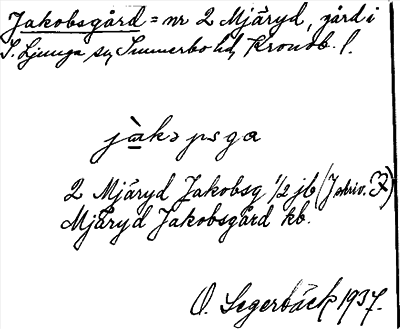 Jakobsgård = nr 2 Mjäryd, gård i
S. Ljunga sn, Sunnerbo hd, Kronob. l.
jàkəpsga
2 Mjäryd Jakobsg 1/2 jb (J skriv. F)
Mjäryd Jakobsgård kb.
O. Segerbäck 1937.